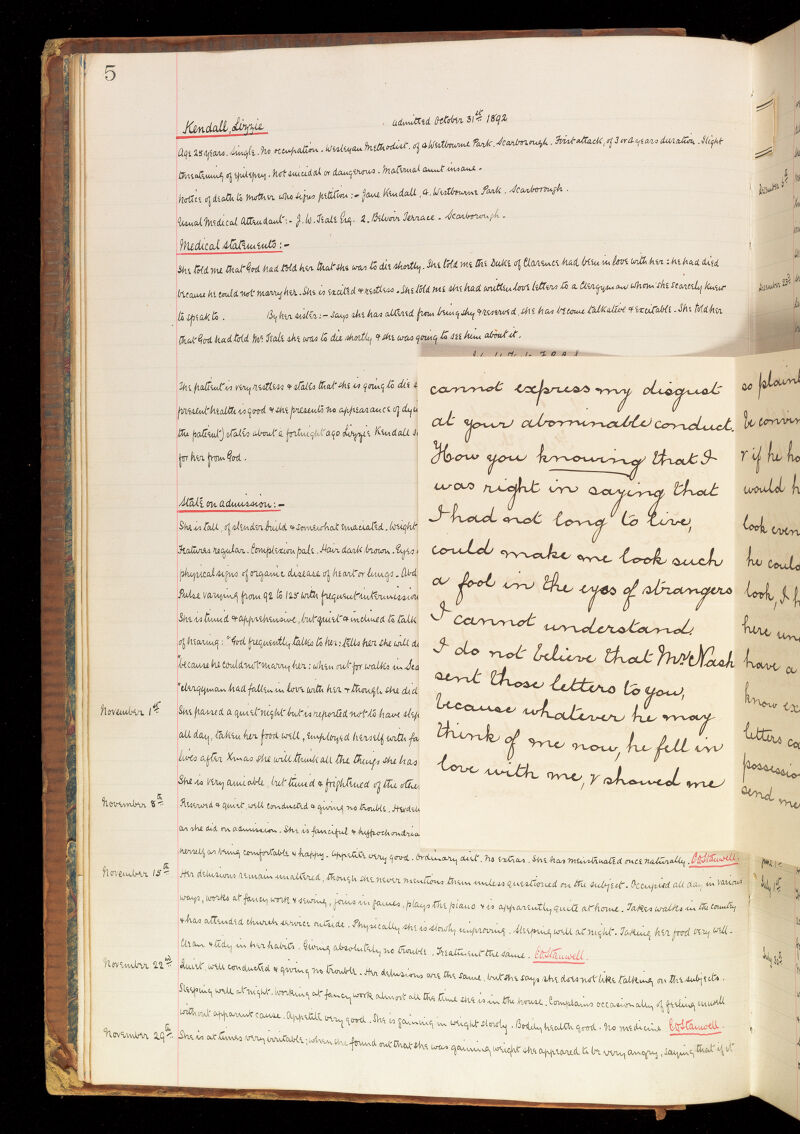 5
Kendall, Lizzie admitted October 31st 1892
Age 25 years. Single. No occupation. Wesleyan Methodist. of 4 Westbourne Park, Scarborough. First attack, of 3 or 4 years duration. Slight
threatening of epilepsy. Not suicidal or dangerous. Maternal aunt insane.
Notice of death to mother who signs petition:- Jane Kendall, 4. Westbourne Park, Scarborough.
Usual Medical Attendant:- J. W. Teale Esq. 2. Belvoir Terrace - Scarborough.
Medical Statements:-
She told me that God had told her that she was to die shortly. She told me the Duke of Clarence had been in love with her: he had died
because he could not marry her. She is excited & restless. She told me she had written love letters to a Clergyman whom she scarcely knew
to speak to. By her sister:- says she has altered from being shy & reserved, she has become talkative & excitable. She told her
that God had told Mr Teale she was to die shortly & she was going to see him about it.
The patient is very restless & states that she is going to die
present health is good & she presents no appearance of
the patient) states about a fortnight ago Lizzie Kendall
for her from God.
State on admission:-
She is tall, of slender build & somewhat emaciated. Weight
Features regular. Complexion pale. Hair dark brown. Eyes
physical signs of organic disease of heart or lungs.
Pulse varying from 92 to 125 with frequent intermission
She is timid & apprehensive, but quiet & inclined to talk
of hearing: "God frequently talks to her: tells her she will
"because he could not marry her: when out for walks in
"clergyman had fallen in love with her & though she did
November 1st She passed a quiet night but is reported not to have
all day, taken her food well, employed herself with
lives after Xmas she will think all the things she has
She is very amiable, but timid & frightened of the
November 8th Reserved & quiet, well conducted & giving no trouble.
as she did on admission. She is fanciful &
herself as being comfortable & happy. Appetite very good. Ordinary diet. No extras. She has menstruated once naturally. CoStanwell.
November 15th Her delusions remain unaltered, though she never mentions them unless questioned on the subject. Occupied all day in various
ways, works at fancy work & sewing, joins in games, plays the piano & is apparently quite at home. Takes walks in the country
& has attended church service outside. Physically she is slowly improving. Sleeping well at night. Taking her food very well.
Clean & tidy in her habits. Giving absolutely no trouble. Treatment the same. CoStanwell.
November 22nd Quiet, well conducted & giving no trouble. Her delusions are the same, but she says she does not like talking on the subjects.
Sleeping well at night. Working at fancy work almost all the time she is in the house. Complains occasionally of feeling unwell
without apparent cause. Appetite very good. She is gaining in weight slowly. Bodily health good. No medicine CoStanwell.
November 29th She is at times very irritable; when she found out that she was gaining weight she appeared to be very angry, saying that if it
cannot express my disgust
at your abominable conduct.
How you knowing that I
was right in saying that
I had not long to live,
could make me look such
a fool in the eyes of strangers
I cannot understand.
I do not believe that Mr. Nash
sent those letters to you,
because whatever he may
think of me now, he fell in
love with me, & showed me
so plain
be
& if he
would
look even
he could
look, I
here
have a
know
letters
send me
July 1st
July